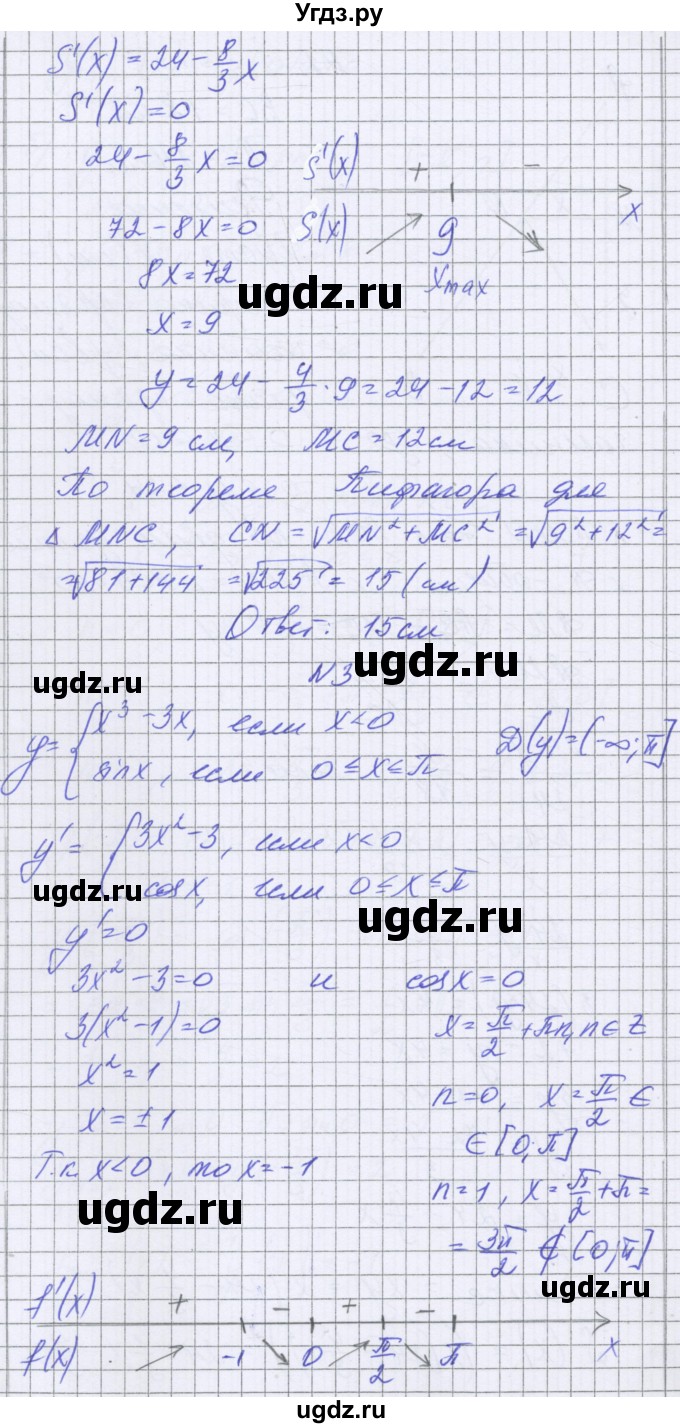 Угдз.ру
S'(x) = 24 - 8/3 x
S'(x) = 0
24 - 8/3 x = 0
S'(x) + - x
72 - 8x = 0
S(x) 9
8x = 72
xmax
ugdz.ru
x = 9
y = 24 - 4/3 · 9 = 24 - 12 = 12
MN = 9 см, MC = 12 см
По теореме Пифагора для
Δ MNC, CN = √MN² + MC² = √9² + 12² =
= √81 + 144 = √225 = 15 (см)
Ответ: 15 см
ugdz.ru
N3
ugdz.ru
y = { x³ - 3x, если x < 0
sin x, если 0 ≤ x ≤ π
D(y) = (-∞; π]
y' = { 3x² - 3, если x < 0
ugdz.ru
cos x, если 0 ≤ x ≤ π
ugdz.ru
y' = 0
3x² - 3 = 0 и cos x = 0
3(x² - 1) = 0 x = π/2 + πn, n ∈ Z
x² = 1
n = 0, x = π/2 ∈
x = ± 1
∈ [0; π]
Т.к. x < 0, то x = -1
n = 1, x = π/2 + π =
ugdz.ru
= 3π/2 ∉ [0; π]
ugdz.ru
f'(x) + - + -
f(x) -1 0 π/2 π x
ugdz.ru